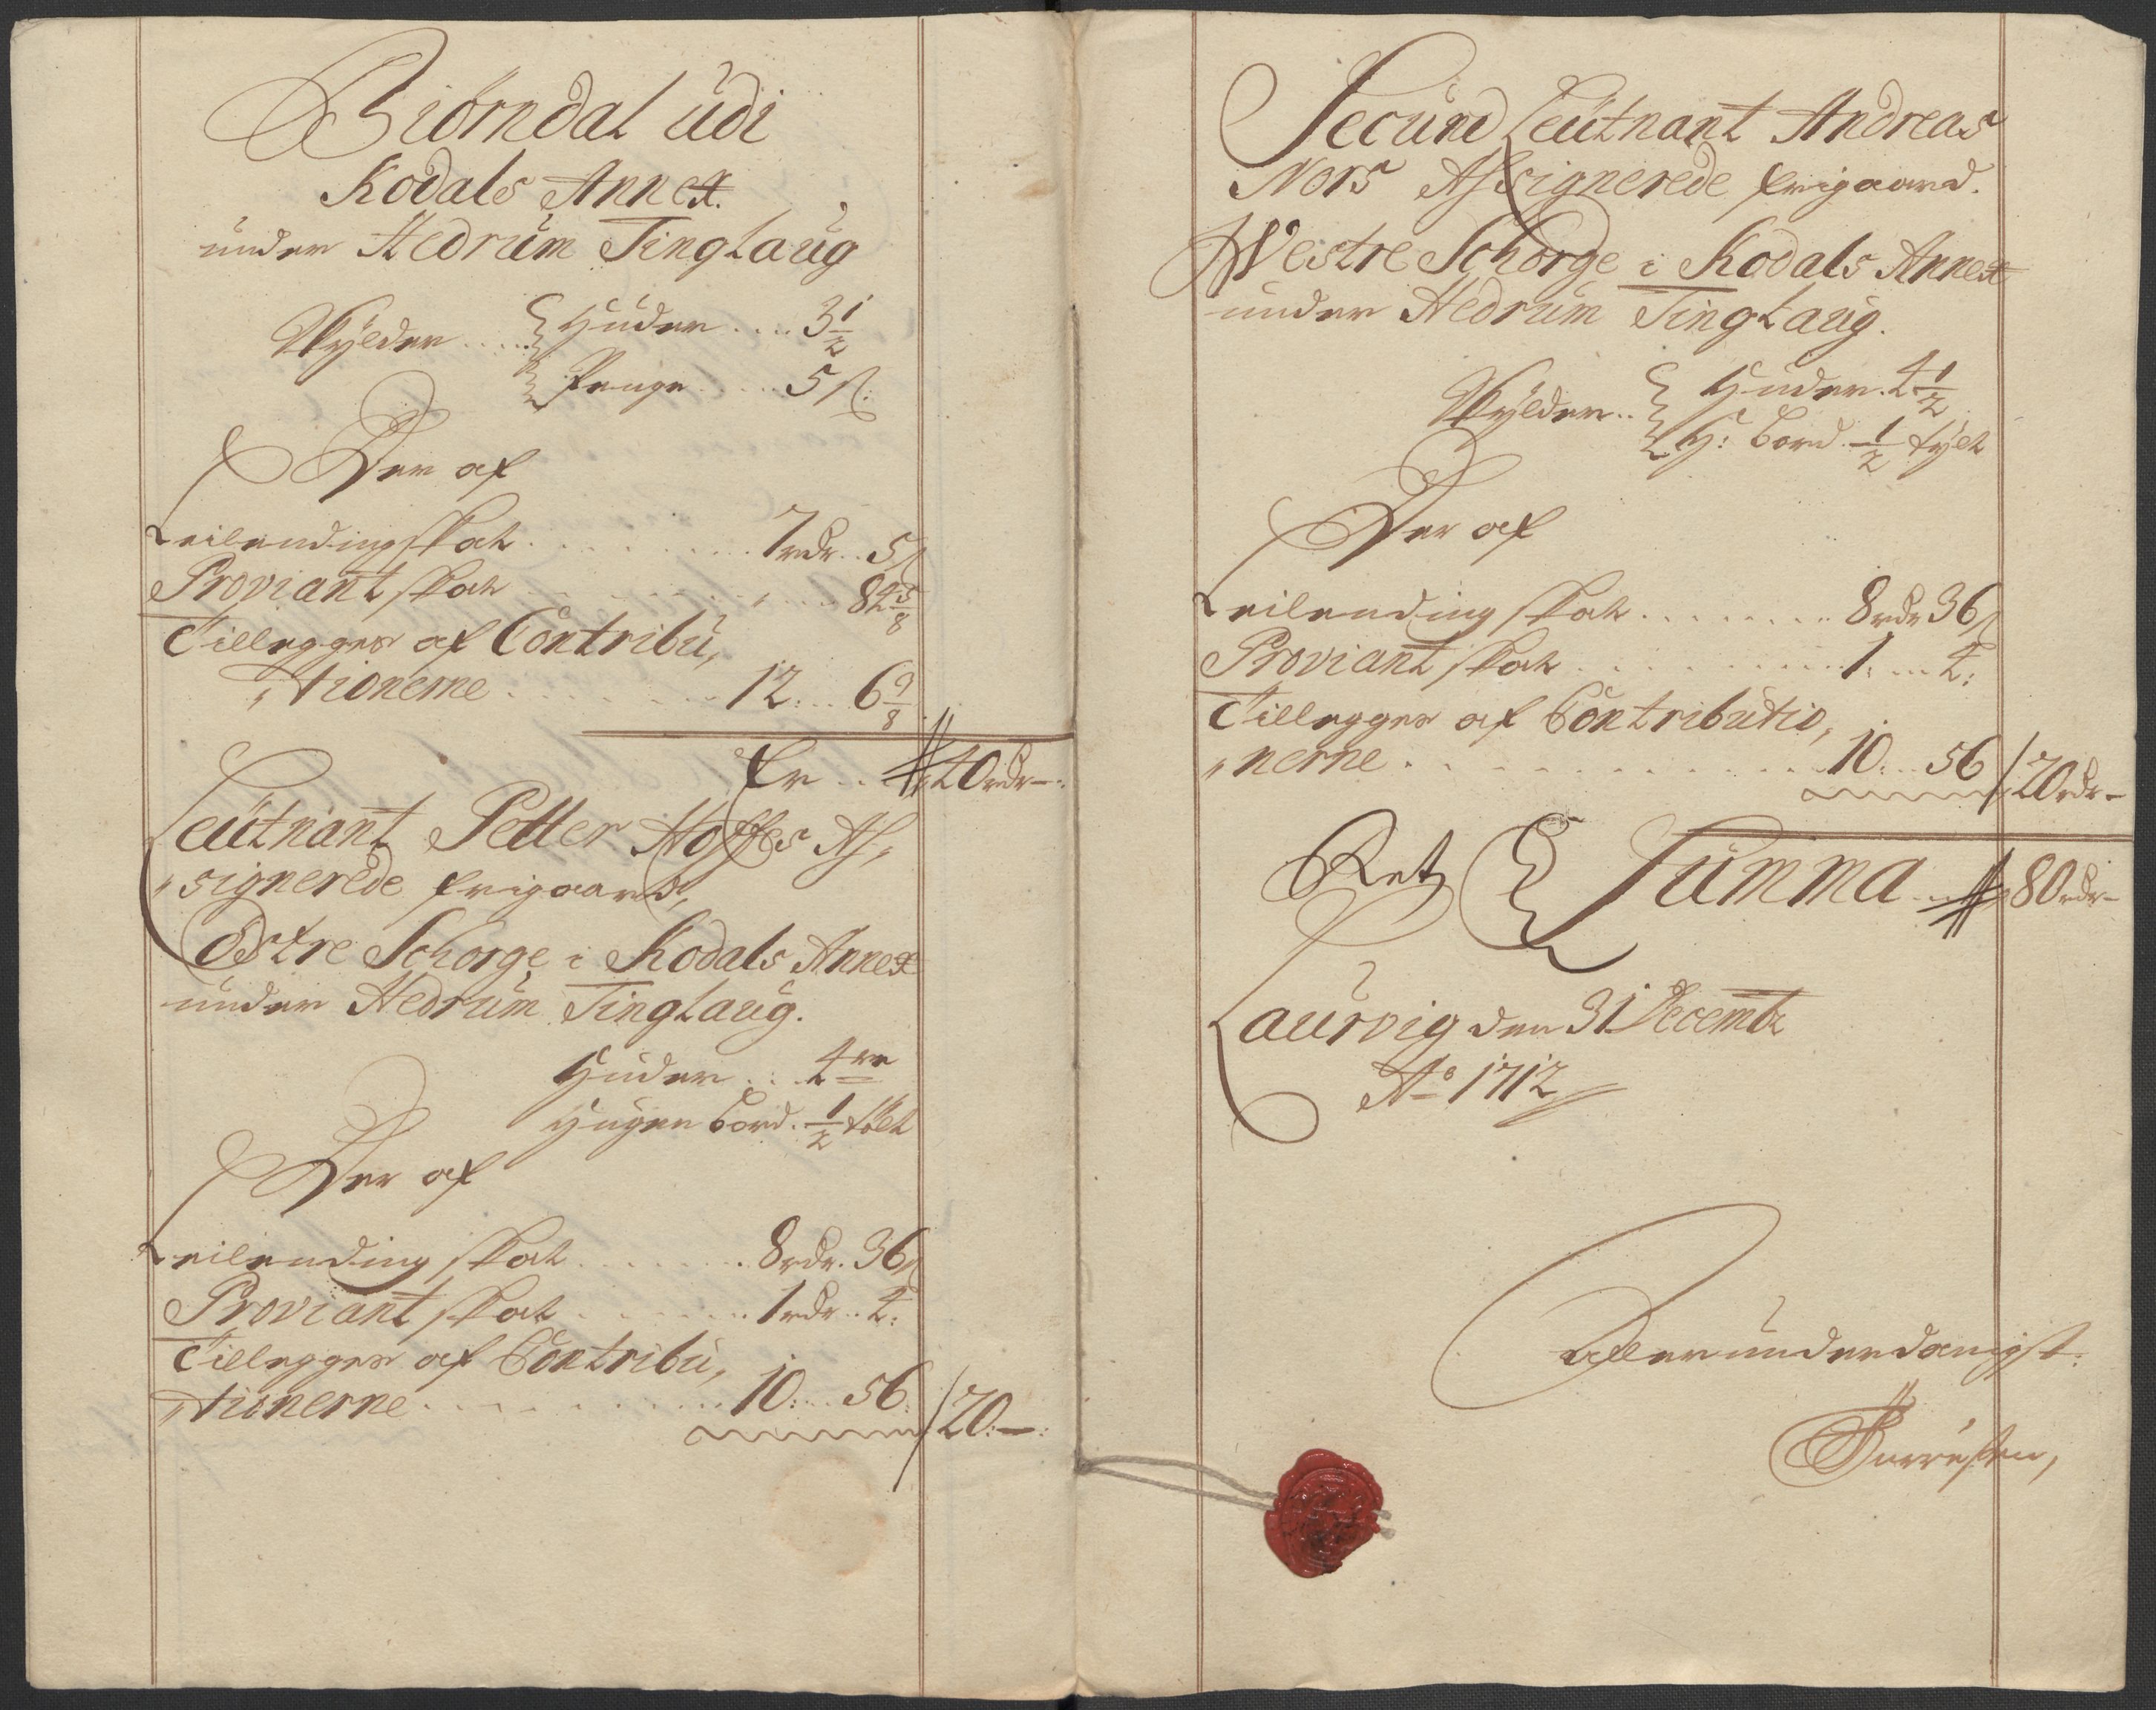 Biörndal udi
Kodals Annex.
under Hedrum Tinglaug
Skylder ..... Huder .... 3 1/2
Penge ..... 5 ß:
Der af
Leilending skat ......... 7 rdr .. 5 ß
Proviant skat ......... 84 5/8
Tillegges af Contribu,
„tionerne ....... 12: ... 6 3/8
Er .. 40 rdr —:
Leutnant Petter Hoffes As,
„signerede frigaard,
Östre Schorge i Kodals Annex
under Hedrum Tinglaug.
Huder ... 4re
Hugen bord. 1/2 tölt
Der af
Leilending skat ....... 8 rdr. 36 ß
Proviant skat ....... 1 rdr .. 4:
Tillegges af Contribu,
„tionerne ......... 10: .. 56: / 20: —:
Secund Leutnant Andreas
Nors Assignerede frigaard.
Westre Schorge i Kodals Annex
under Hedrum Tinglaug.
Skylder .. Huder. 4 1/2
H: bord. 1/2 tylt
Der af
Leilending skat ........ 8 rdr 36 ß
Proviant skat ......... 1: ... 4:
Tillegges af Contributio,
„nerne ............ 10: .. 56 / 20 rdr —
Ret Summa .. 80 rdr —
Laurvig den 31 Decembr
Ao 1712
Allerunderdanigst.